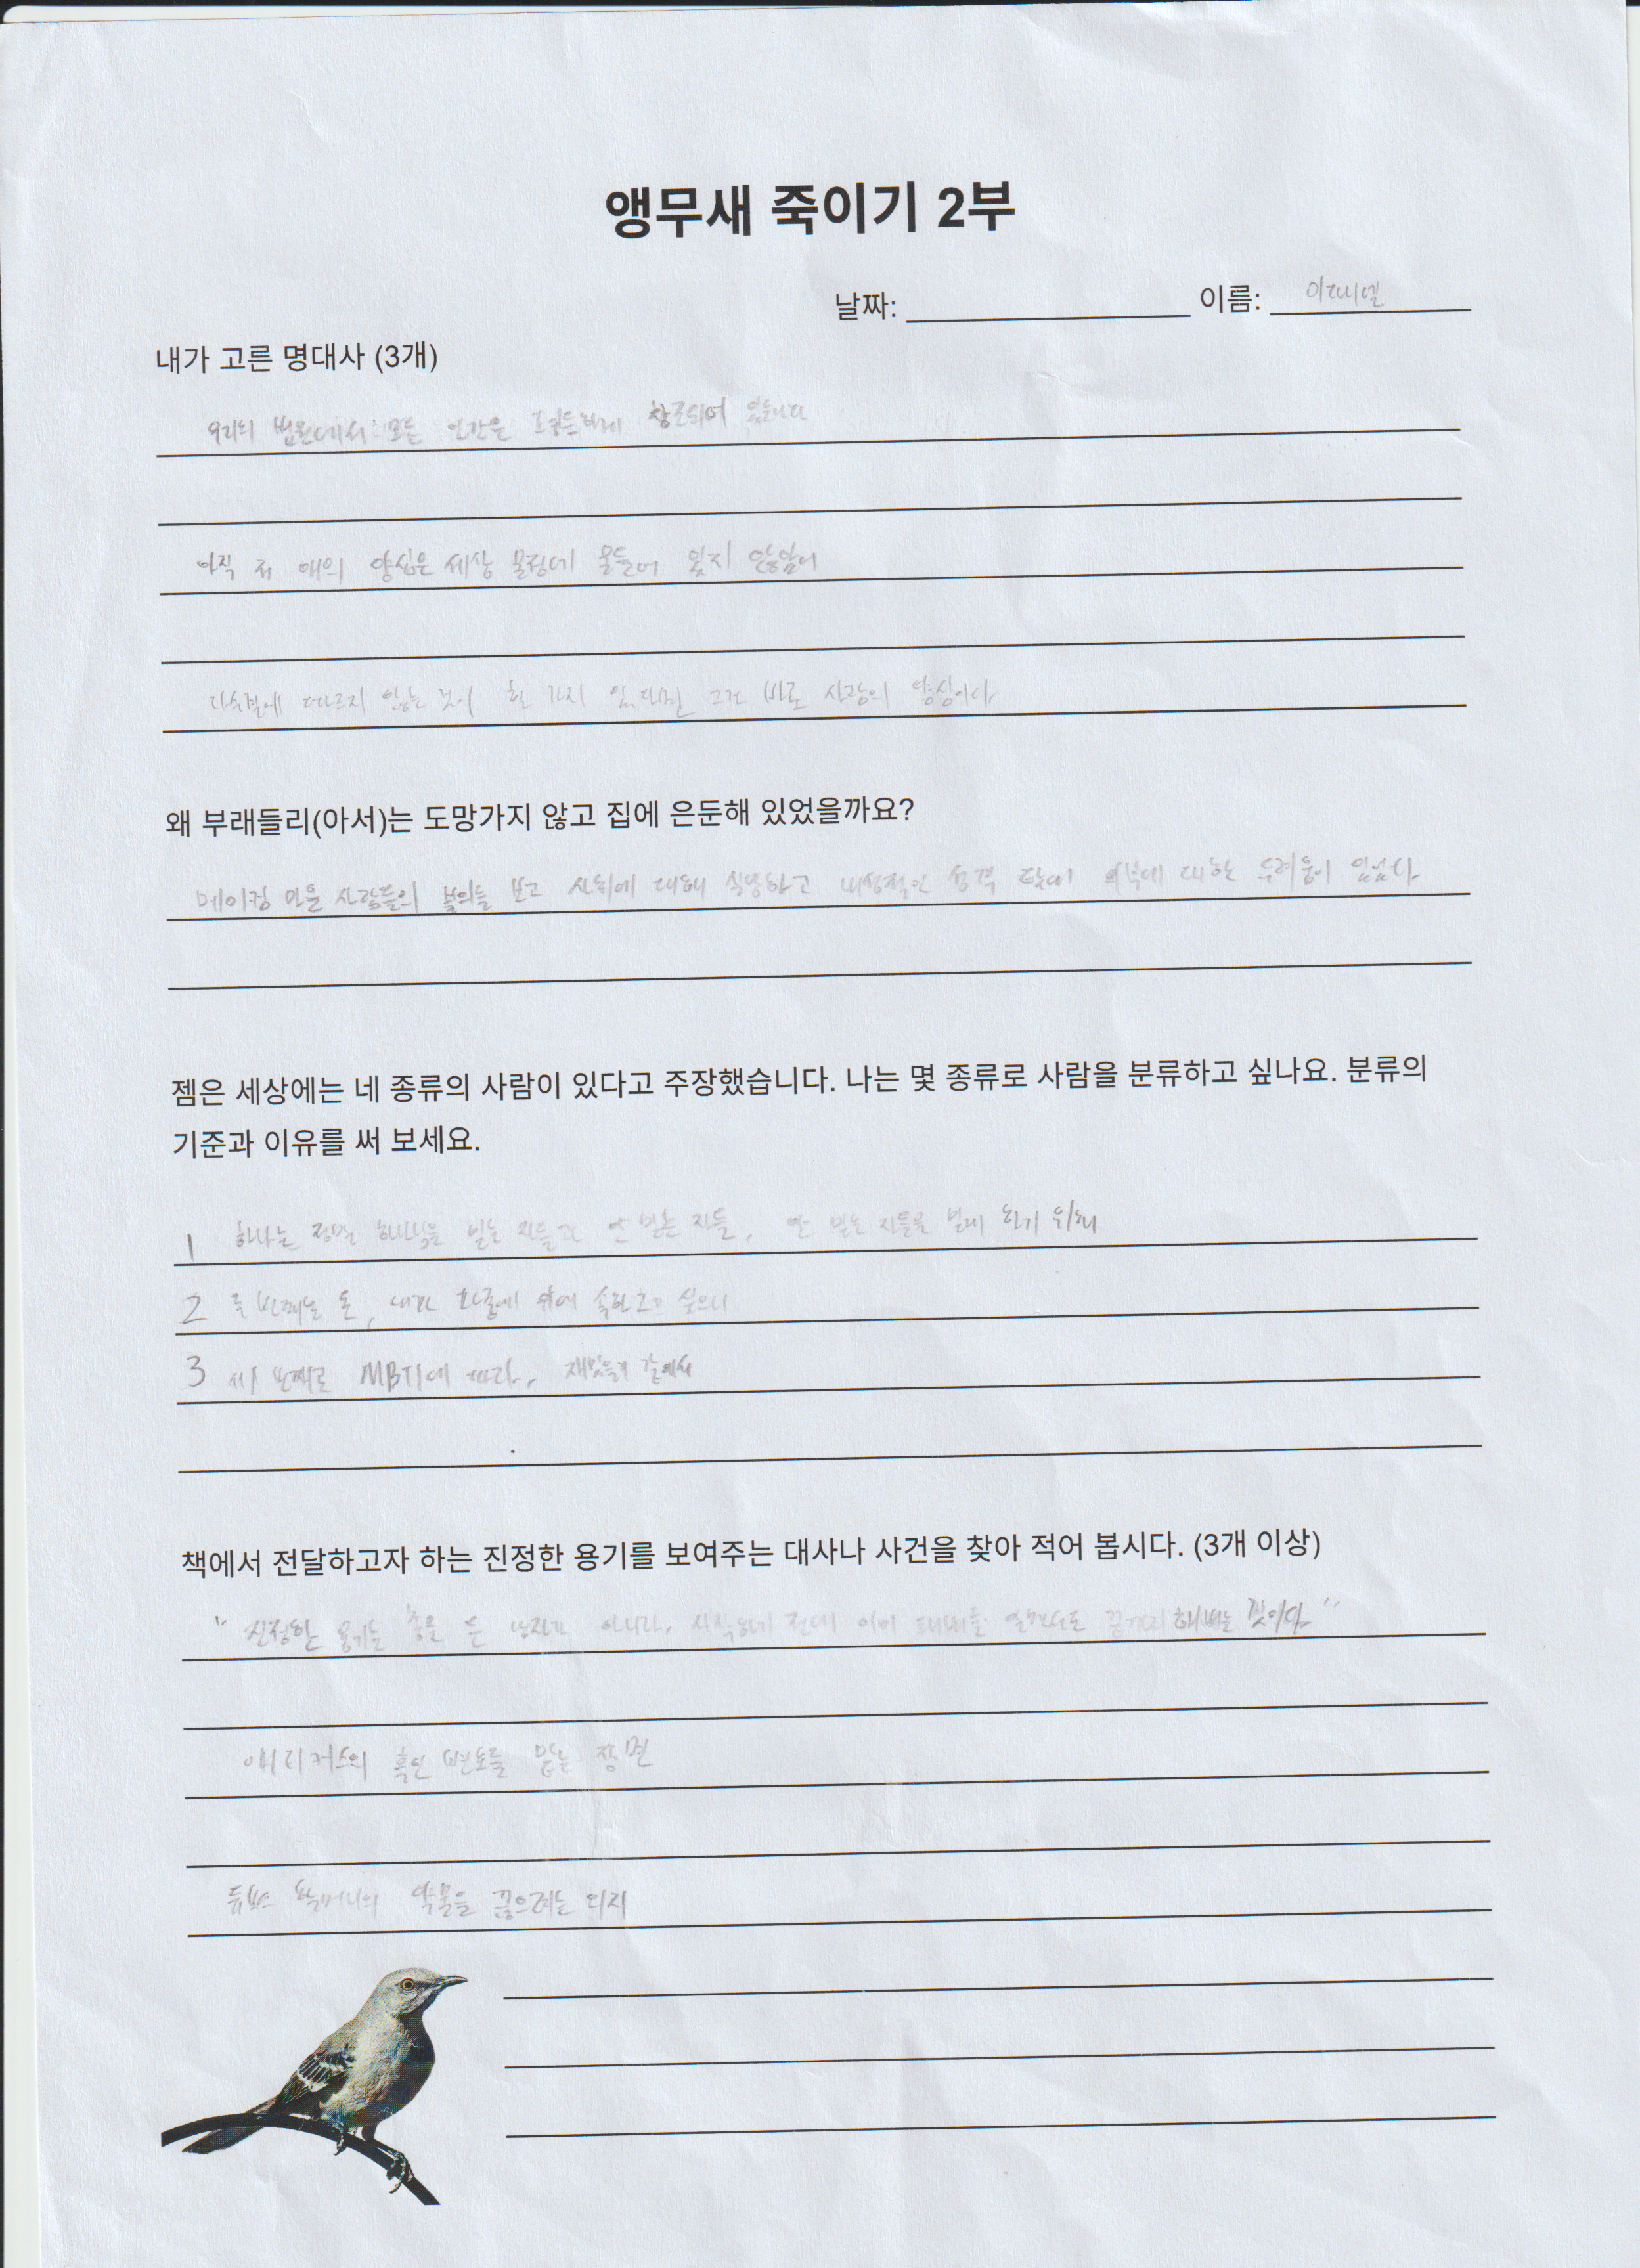 앵무새 죽이기 2부
날짜: 이름: 이다니엘
내가 고른 명대사 (3개)
우리의 법원에서 모든 인간은 평등하게 창조되어 있습니다
아직 저 애의 양심은 세상 물정에 물들어 있지 않았어
다수결에 따르지 않는 것이 한 가지 있다면 그건 바로 사람의 양심이다
왜 부래들리(아서)는 도망가지 않고 집에 은둔해 있었을까요?
메이컴 마을 사람들의 불의를 보고 사회에 대해 실망하고 내성적인 성격 탓에 외부에 대한 두려움이 있었다.
젬은 세상에는 네 종류의 사람이 있다고 주장했습니다. 나는 몇 종류로 사람을 분류하고 싶나요. 분류의
기준과 이유를 써 보세요.
1 하나는 정말 믿는 자들과 안 믿는 자들, 안 믿는 자들을 믿게 하기 위해
2 두 번째는 돈, 내가 위에 속하고 싶으니
3 세 번째로 MBTI에 따라, 재밌을거 같에서
책에서 전달하고자 하는 진정한 용기를 보여주는 대사나 사건을 찾아 적어 봅시다. (3개 이상)
" 진정한 용기는 총을 든 남자가 아니라, 시작하기 전에 이미 패배를 알면서도 끝까지 해내는 것이다. "
애티커스의 흑인 변호를 맡는 장면
듀보스 할머니의 약물을 끊으려는 의지